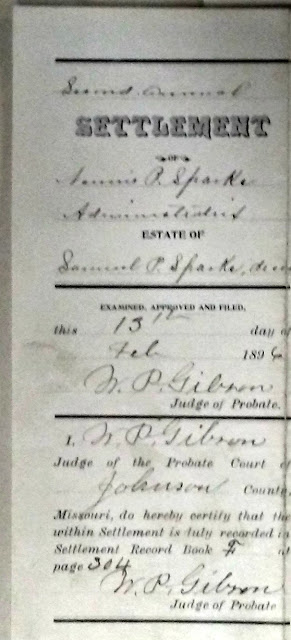 Second Annual
SETTLEMENT
OF
Nannie P. Sparks
Administratrix
ESTATE OF
Samuel P. Sparks, decd
EXAMINED, APPROVED AND FILED,
this 13th day of
Feb 1896
W. P. Gibson
Judge of Probate.
I, W. P. Gibson
Judge of the Probate Court of
Johnson County
Missouri, do hereby certify that the
within Settlement is duly recorded in
Settlement Record Book F at
page 304
W. P. Gibson
Judge of Probate